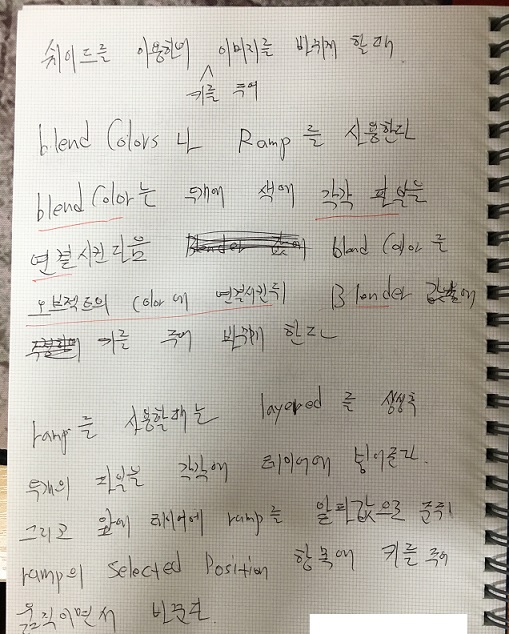 쉐이드를 이용한여 이미지를 바뀌게 할 때
키를 주어
blend Colors 나 Ramp를 사용한다
blend Color는 두개에 색에 각각 파일을
연결시킨다음 blend Color를
오브젝트의 Color에 연결시킨뒤 Blender 값에
키를 주어 바뀌게 한다
ramp를 사용할때는 layered를 생성후
두개의 파일을 각각에 레이어에 넣어준다.
그리고 앞에 레이어에 ramp를 알파값으로 준뒤
ramp의 Selected Position 항목에 키를 주어
움직이면서 바꾼다